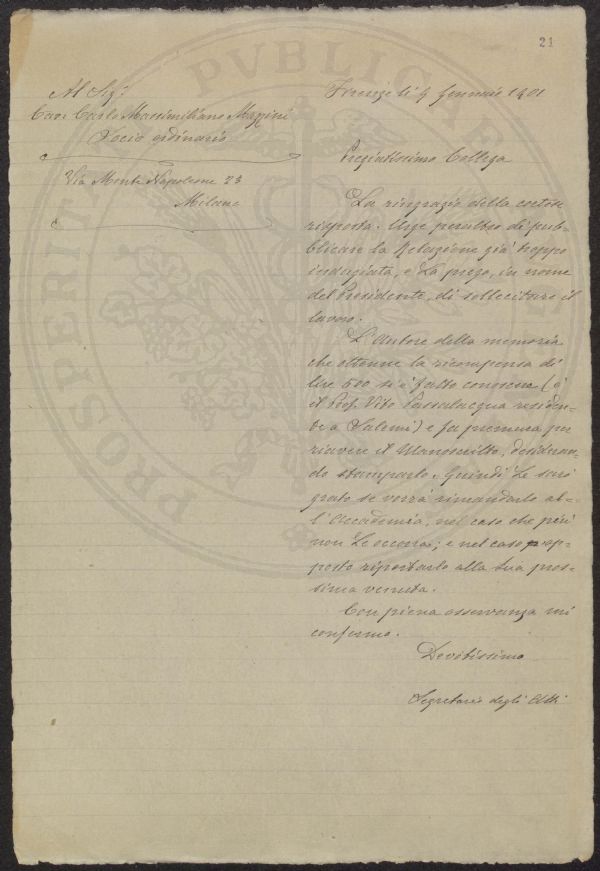 21
Al Sig:
Cav: Carlo Massimiliano Mazzini
Socio ordinario
Via Monte Napoleone 23
Milano
Firenze li 4 Gennaio 1901
Pregiatissimo Collega
La ringrazio della cortese
risposta. Urge peraltro di pub-
blicare la Relazione già troppo
indugiata, e La prego, in nome
del Presidente, di sollecitare il
lavoro.
L'Autore della memoria
che ottenne la ricompensa di
lire 500 si è fatto conoscere (è
il Prof. Vito Passalacqua residen-
te a Salemi) e fa premura per
riavere il Manoscritto, desideran-
do stamparlo. Quindi Le sarò
grato se vorrà rimandarlo al-
l'Accademia, nel caso che più
non Le occorra; e nel caso op-
posto riportarlo alla Sua pros-
sima venuta.
Con piena osservanza mi
confermo.
Devotissimo
Segretario degli Atti
PROSPERITATI PVBLICAE